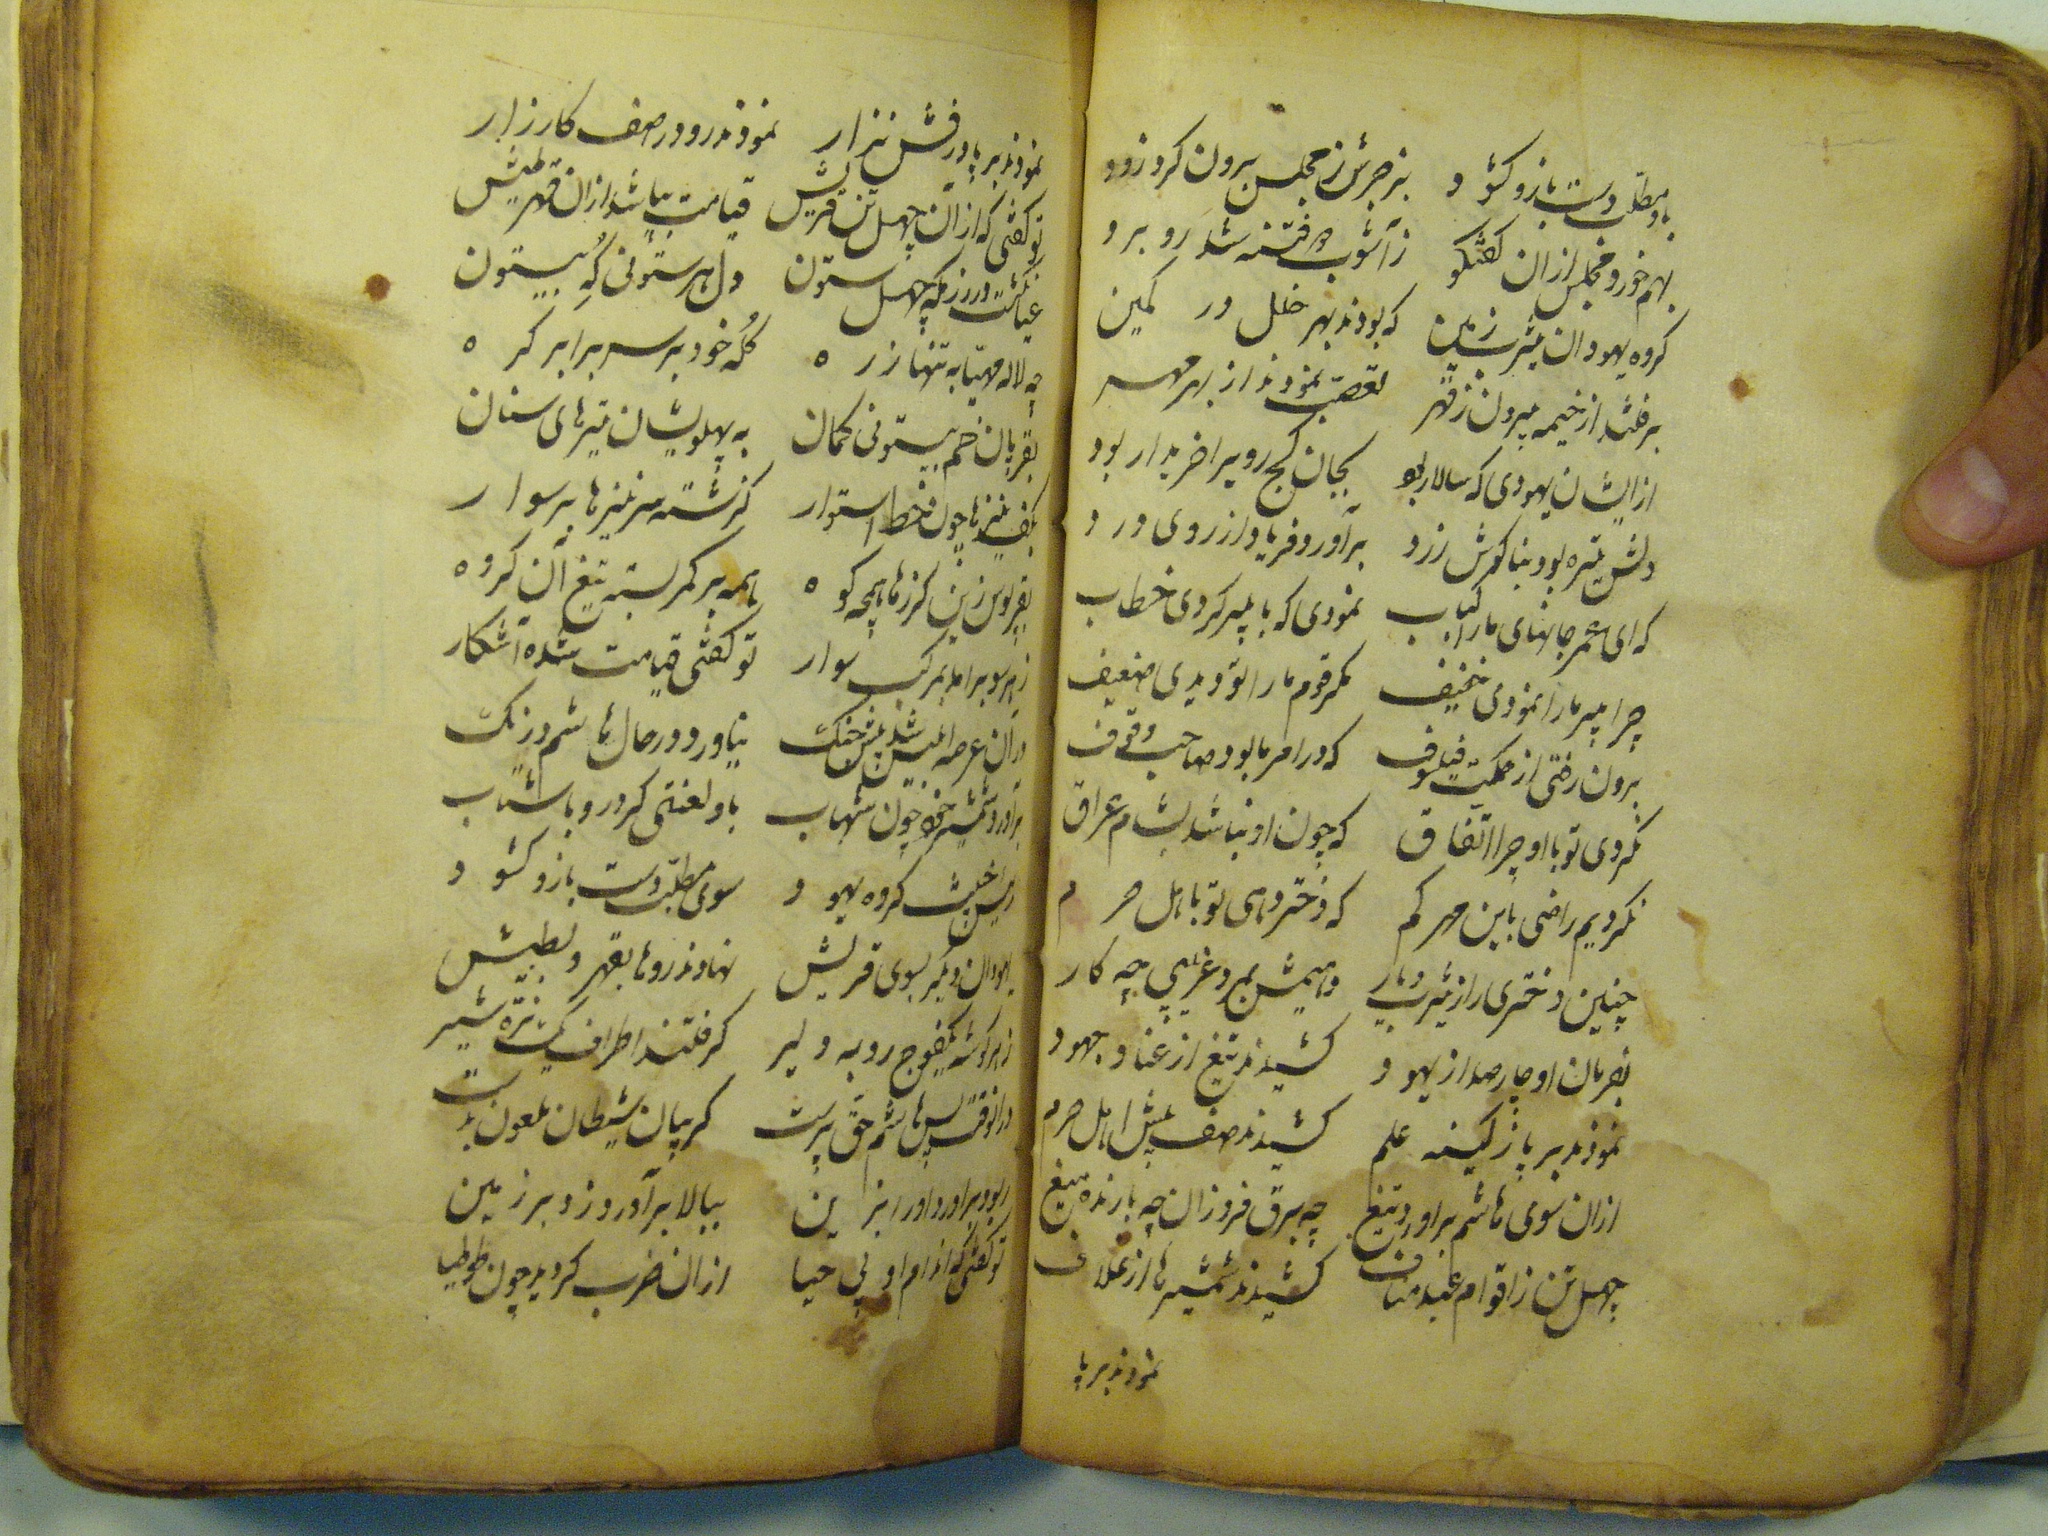 باو مطلب دست بازو کشود بزجرش ز مجلس برون کرد زود
بهم خورد مجلس از ان گفتگو ز آشوب فتنه شد رو برو
گروه یهودان یثرب زمین که بودند بهر خلل در کمین
برفتند از خیمه بیرون ز قهر تعصب نمودند از بهر مهر
از ایشان یهودی که سالار بود بجان کج رویرا خریدار بود
دلش تیره بود و بناگوش زرد برآورد فریاد از روی درد
که ای عمر جانهای ما را کباب نمودی که با پیر کردی خطاب
چرا پیر ما را نمودی خفیف مگر قوم ما را تو دیدی ضعیف
برون رفتی از حکمت فیلسوف که در امر ما بود صاحب وقوف
نکردی تو با او چرا اتفاق که چون او نباشد بشام و عراق
نکردیم راضی باین مهر کم که دختر دهی تو باهل حرم
چنین دختری را ز یثرب دیار دهیمش بمرد غریبی چه کار
بفرمان او چارصد از یهود کشیدند تیغ از عناد و جهود
نمودند بر پا ز کینه علم کشیدند صف پیش اهل حرم
ازان سوی هاشم براورد تیغ چه برق فروزان چه بارنده میغ
چهل تن ز اقوام عبد مناف کشیدند شمشیرها از غلاف
نمودند بر پا
نمودند بر پا درفش نزار نمودند رو در صف کارزار
تو گفتی که ازان چهل تن قریش قیامت بپا شد ازان قهر و طیش
عیان گشت در رزمگه چهل ستون دل هر ستونی که بیستون
چه لاله مهیا به تنها زره کله خود بر سر برابر گره
بقربان خم بیستونی کمان به پهلویشان تیرهای سنان
بکف نیزها چون خط استوار گذشته سر نیزها بر سوار
بقربوس زین گرزها همچه کوه همه بر کمر بسته تیغ آن گروه
ز هر سو برامد بمرکب سوار تو گفتی قیامت شده آشکار
دران عرصه ابلیس شد پیش جنگ بیاورد در حال هاشم درنگ
برآورد شمشیر خود چون شهاب باو لعنتی کرد رو باشتاب
رئیس خبیث گروه یهود سوی مطلب دست بازو کشود
یهودان دیگر بسوی قریش نهادند روها بقهر و بطیش
ز هر گوشه یکفوج روبه دلیر گرفتند اطراف یک نره شیر
در انوقت پس هاشم حق پرست گریبان شیطان ملعون بدست
ربود و براورد اورا ز زین ببالا برآورد و زد بر زمین
تو گفتی که اندام او بی حیا ازان ضرب گردید چون طوطیا